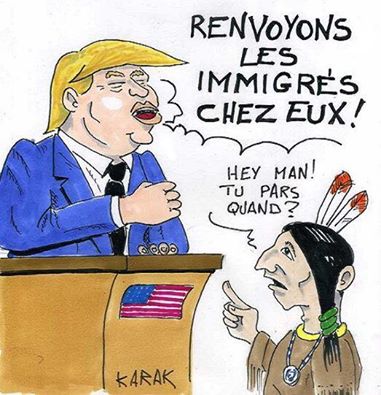 RENVOYONS
LES
IMMIGRÉS
CHEZ EUX!
HEY MAN!
TU PARS
QUAND?
KARAK